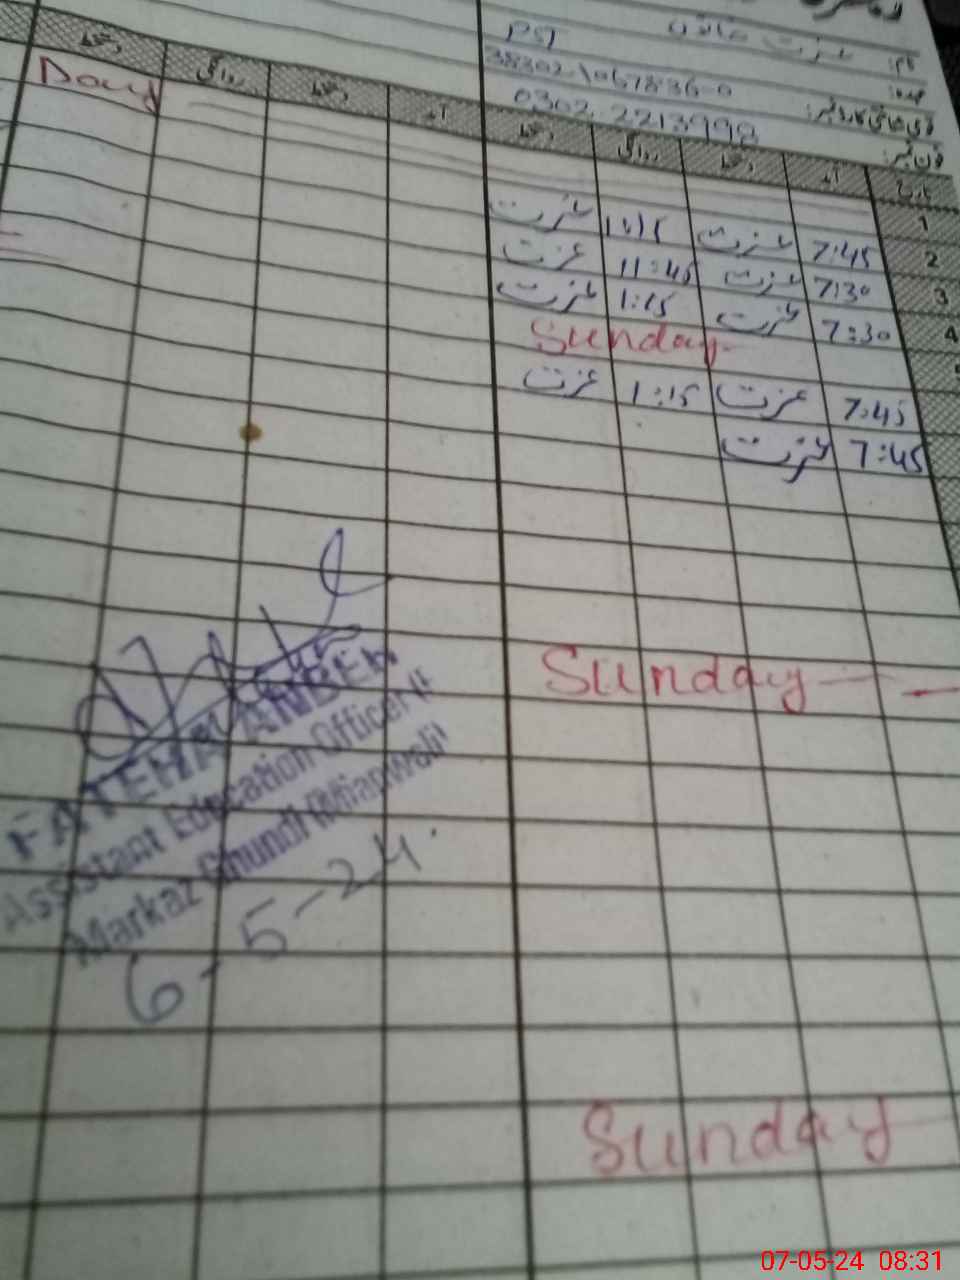 نام: عزت خاتون
عہدہ: PST
قومی شناختی کارڈ نمبر: 38302-1067836-0
فون نمبر: 0302 2213998
تاریخ آمد دستخط روانگی دستخط آمد دستخط روانگی دستخط
Day
1
2 7:45 عزت 1:15 عزت
3 7:30 عزت 11:45 عزت
4 7:30 عزت 1:15 عزت
5 Sunday
7:45 عزت 1:15 عزت
7:45 عزت
Sunday
FATEH
Assistant Education Officer
Markaz Ghundi (Mianwali)
6-5-24
Sunday
07-05-24 08:31